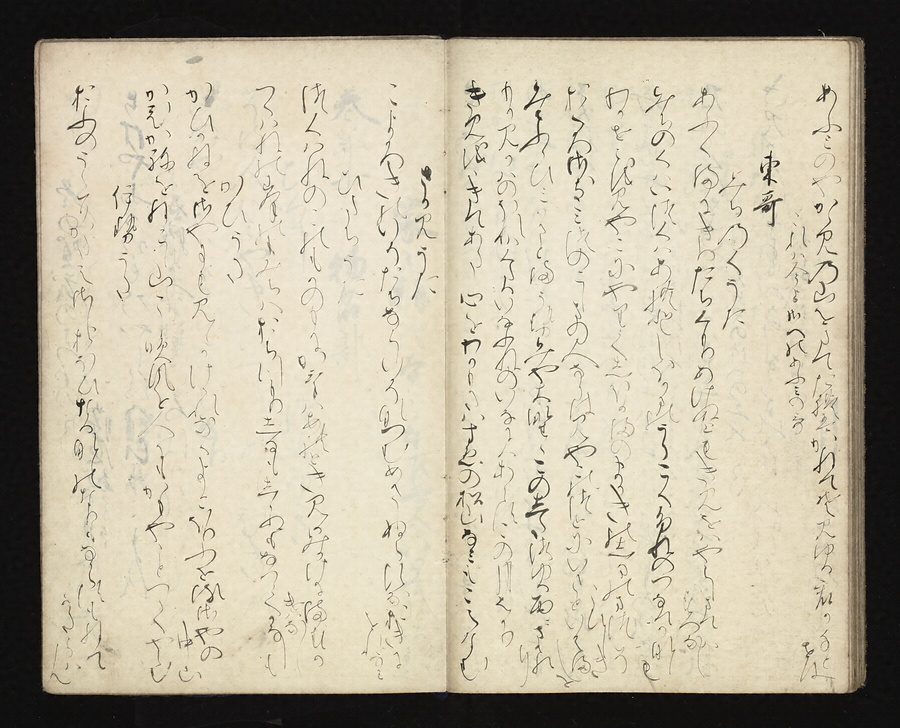 あふみのやかゝみの山をたてたれはかねてそ見ゆる君かちとせは
これは今上の御へのあふみのうた
東哥
みちのくうた
あふくまにきりたちくもりあけぬともきみをはやらしまてはすへなし
みちのくはいつくはあれとしほかまのうらこくふねのつなてかなしも
わかせこをみやこにやりてしほかまのまかきの島の松そこひしき
おくろさきみつのこしまの人ならはみやこのつとにいさといはましを
みさふらひみかさと申せ宮木野のこの下露は雨にまされり
もかみ河のほれはくたるいなふねのいなにはあらすこの月はかり
きみをおきてあたし心をわかもたはすゑの松山なみもこえなむ
さかみうた
こよろきのいそたちならしいそなつむめさしぬらすなおきにをれなみ
ひたちうた
つくはねのこのもかのもにかけはあれときみかみかけにますかけはなし
つくはねの峯のもみちはおちつもりしるもしらぬもなへてかなしも
かひうた
かひかねをさやにも見しかけゝれなくよこほりふせるさやの中山
かひかねをねこし山こし吹風を人にもかもやことつてやらむ
伊勢うた
おふのうらにかたえさしおほひなる梨のなりもならすもねてかたらはん